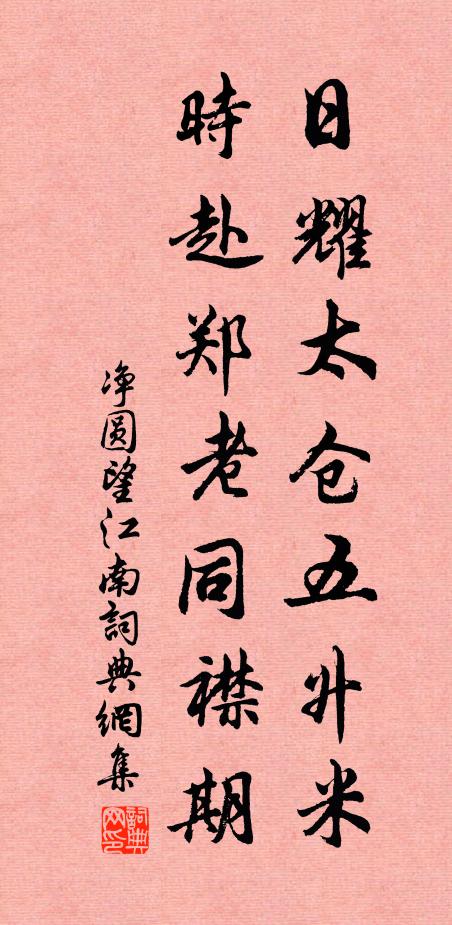 日耀太仓五升米
時赴郑老同襟期
净圆望江南詞典網集
詞典网印